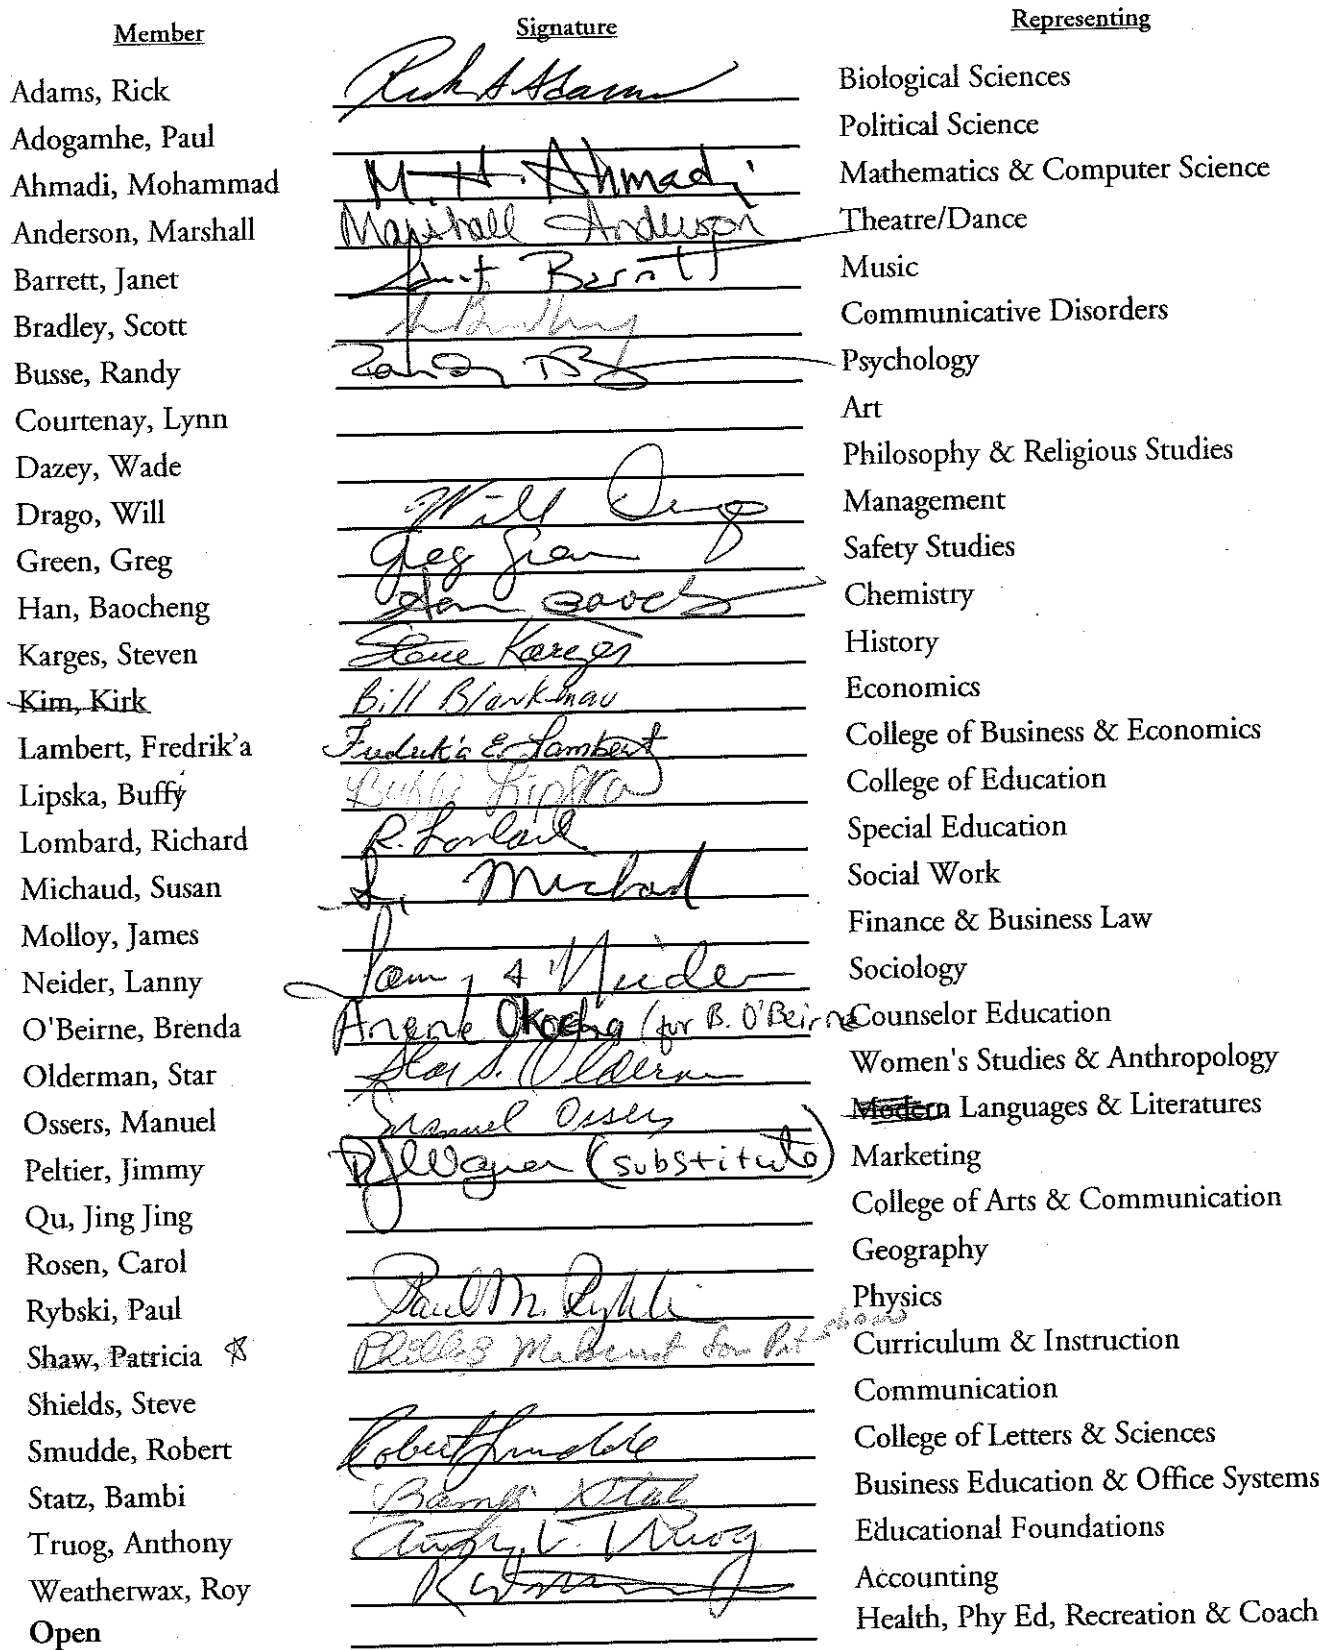 Member Signature Representing
Adams, Rick Rick A Adams Biological Sciences
Adogamhe, Paul Political Science
Ahmadi, Mohammad M. H. Ahmadi Mathematics & Computer Science
Anderson, Marshall Marshall Anderson Theatre/Dance
Barrett, Janet Janet Barrett Music
Bradley, Scott Communicative Disorders
Busse, Randy Psychology
Courtenay, Lynn Art
Dazey, Wade Philosophy & Religious Studies
Drago, Will Will Drago Management
Green, Greg Greg Green Safety Studies
Han, Baocheng Han Chemistry
Karges, Steven Steve Karges History
Kim, Kirk Bill Blankenau Economics
Lambert, Fredrik'a Fredrik'a E. Lambert College of Business & Economics
Lipska, Buffy Buffy Lipska College of Education
Lombard, Richard R. Lombard Special Education
Michaud, Susan S. Michaud Social Work
Molloy, James Finance & Business Law
Neider, Lanny Lanny A Neider Sociology
O'Beirne, Brenda Anene Okocha (for B. O'Beirne Counselor Education
Olderman, Star Star S. Olderman Women's Studies & Anthropology
Ossers, Manuel Manuel Ossers Modern Languages & Literatures
Peltier, Jimmy RJ Wagner (substitute) Marketing
Qu, Jing Jing College of Arts & Communication
Rosen, Carol Geography
Rybski, Paul Paul M. Rybski Physics
Shaw, Patricia for Pat Shaw Curriculum & Instruction
Shields, Steve Communication
Smudde, Robert Robert Smudde College of Letters & Sciences
Statz, Bambi Bambi Statz Business Education & Office Systems
Truog, Anthony Anthony V. Truog Educational Foundations
Weatherwax, Roy Accounting
Open Health, Phy Ed, Recreation & Coach